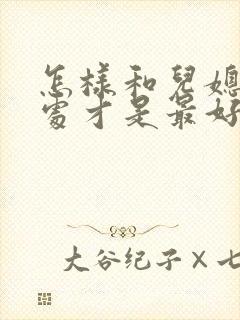 怎樣和兒媳
處才是最好
大谷纪子×七